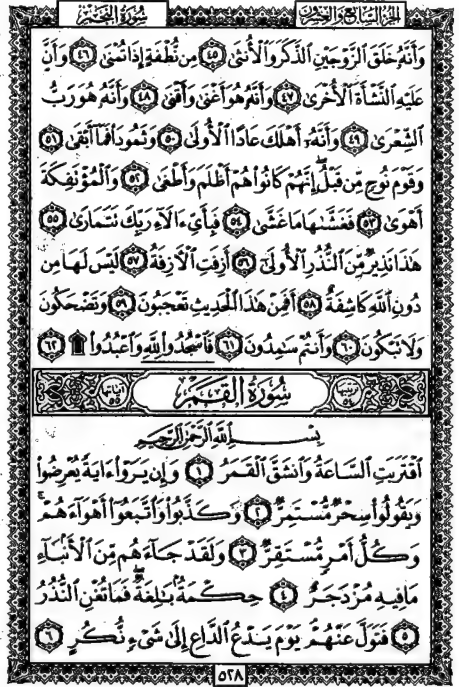 الجزء السابع والعشرون
سورة النجم
وَأَنَّهُۥ خَلَقَ ٱلزَّوۡجَيۡنِ ٱلذَّكَرَ وَٱلۡأُنثَىٰ ٤٥ مِن نُّطۡفَةٍ إِذَا تُمۡنَىٰ ٤٦ وَأَنَّ
عَلَيۡهِ ٱلنَّشۡأَةَ ٱلۡأُخۡرَىٰ ٤٧ وَأَنَّهُۥ هُوَ أَغۡنَىٰ وَأَقۡنَىٰ ٤٨ وَأَنَّهُۥ هُوَ رَبُّ
ٱلشِّعۡرَىٰ ٤٩ وَأَنَّهُۥٓ أَهۡلَكَ عَادًا ٱلۡأُولَىٰ ٥٠ وَثَمُودَاْ فَمَآ أَبۡقَىٰ ٥١
وَقَوۡمَ نُوحٖ مِّن قَبۡلُۖ إِنَّهُمۡ كَانُواْ هُمۡ أَظۡلَمَ وَأَطۡغَىٰ ٥٢ وَٱلۡمُؤۡتَفِكَةَ
أَهۡوَىٰ ٥٣ فَغَشَّىٰهَا مَا غَشَّىٰ ٥٤ فَبِأَيِّ ءَالَآءِ رَبِّكَ تَتَمَارَىٰ ٥٥
هَٰذَا نَذِيرٞ مِّنَ ٱلنُّذُرِ ٱلۡأُولَىٰٓ ٥٦ أَزِفَتِ ٱلۡأٓزِفَةُ ٥٧ لَيۡسَ لَهَا مِن
دُونِ ٱللَّهِ كَاشِفَةٌ ٥٨ أَفَمِنۡ هَٰذَا ٱلۡحَدِيثِ تَعۡجَبُونَ ٥٩ وَتَضۡحَكُونَ
وَلَا تَبۡكُونَ ٦٠ وَأَنتُمۡ سَٰمِدُونَ ٦١ فَٱسۡجُدُواْ لِلَّهِ وَٱعۡبُدُواْ ۩ ٦٢
ترتيبها ٥٤ سورة القمر آياتها ٥٥
بِسۡمِ ٱللَّهِ ٱلرَّحۡمَٰنِ ٱلرَّحِيمِ
ٱقۡتَرَبَتِ ٱلسَّاعَةُ وَٱنشَقَّ ٱلۡقَمَرُ ١ وَإِن يَرَوۡاْ ءَايَةٗ يُعۡرِضُواْ
وَيَقُولُواْ سِحۡرٞ مُّسۡتَمِرّٞ ٢ وَكَذَّبُواْ وَٱتَّبَعُوٓاْ أَهۡوَآءَهُمۡۚ
وَكُلُّ أَمۡرٖ مُّسۡتَقِرّٞ ٣ وَلَقَدۡ جَآءَهُم مِّنَ ٱلۡأَنۢبَآءِ
مَا فِيهِ مُزۡدَجَرٌ ٤ حِكۡمَةُۢ بَٰلِغَةٞۖ فَمَا تُغۡنِ ٱلنُّذُرُ
٥ فَتَوَلَّ عَنۡهُمۡۘ يَوۡمَ يَدۡعُ ٱلدَّاعِ إِلَىٰ شَيۡءٖ نُّكُرٍ ٦
٥٢٨